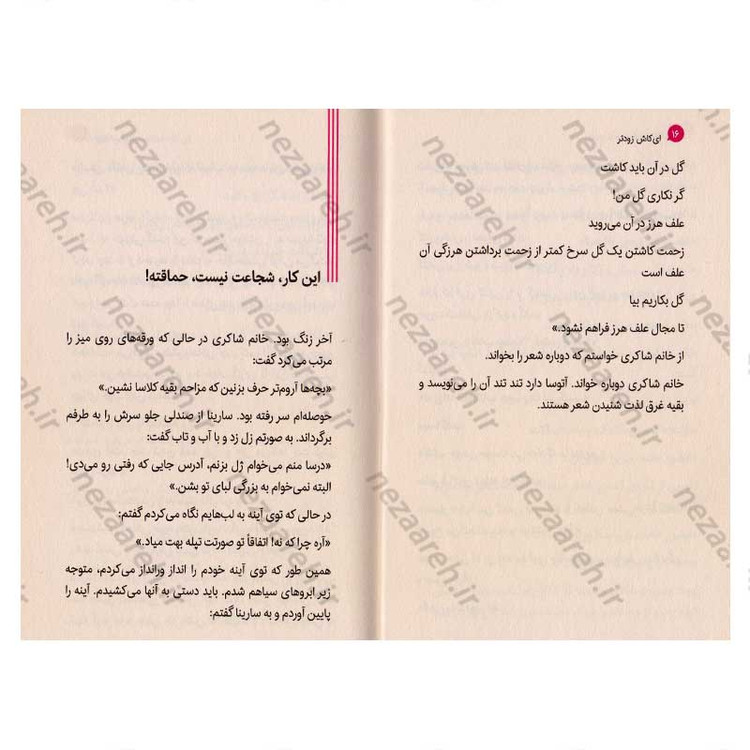 ۱۶ ای‌کاش زودتر
گل در آن باید کاشت
گر نکاری گل من!
علف هرز در آن می‌روید
زحمت کاشتن یک گل سرخ کمتر از زحمت برداشتن هرزگی آن
علف است
گل بکاریم بیا
تا مجال علف هرز فراهم نشود.»
از خانم شاکری خواستم که دوباره شعر را بخواند.
خانم شاکری دوباره خواند. آتوسا دارد تند تند آن را می‌نویسد و
بقیه غرق لذت شنیدن شعر هستند.
این کار، شجاعت نیست، حماقته!
آخر زنگ بود. خانم شاکری در حالی که ورقه‌های روی میز را
مرتب می‌کرد گفت:
«بچه‌ها آروم‌تر حرف بزنین که مزاحم بقیه کلاسا نشین.»
حوصله‌ام سر رفته بود. سارینا از صندلی جلو سرش را به طرفم
برگرداند. به صورتم زل زد و با آب و تاب گفت:
«درسا منم می‌خوام ژل بزنم، آدرس جایی که رفتی رو می‌دی!
البته نمی‌خوام به بزرگی لبای تو بشن.»
در حالی که توی آینه به لب‌هایم نگاه می‌کردم گفتم:
«آره چرا که نه! اتفاقاً تو صورتت تپله بهت میاد.»
همین طور که توی آینه خودم را انداز ورانداز می‌کردم، متوجه
زیر ابروهای سیاهم شدم. باید دستی به آنها می‌کشیدم. آینه را
پایین آوردم و به سارینا گفتم:
nezaareh.ir
nezaareh.ir
nezaareh.ir
nezaareh.ir
nezaareh.ir
nezaareh.ir
nezaareh.ir
nezaareh.ir
nezaareh.ir
nezaareh.ir
nezaareh.ir
nezaareh.ir